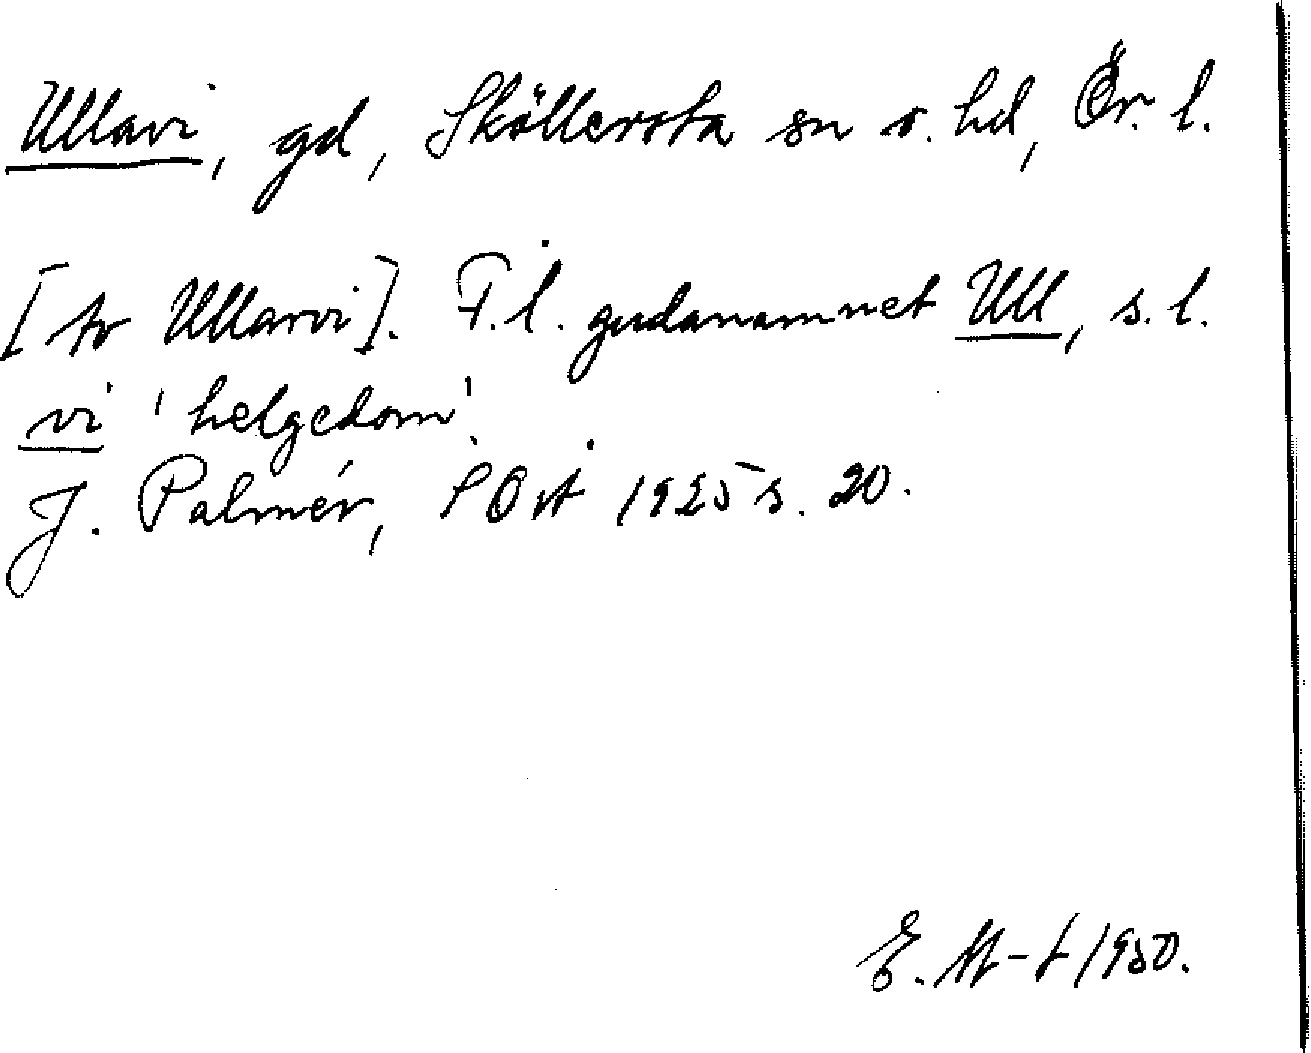 Ullavi, gd, Sköllersta sn o. hd, Ör. l.
[tr Ullarvi]. F.l. gudanamnet Ull, s.l.
vi 'helgedom'.
J. Palmér, SOrt 1925 s. 20.
E. M-t 1950.